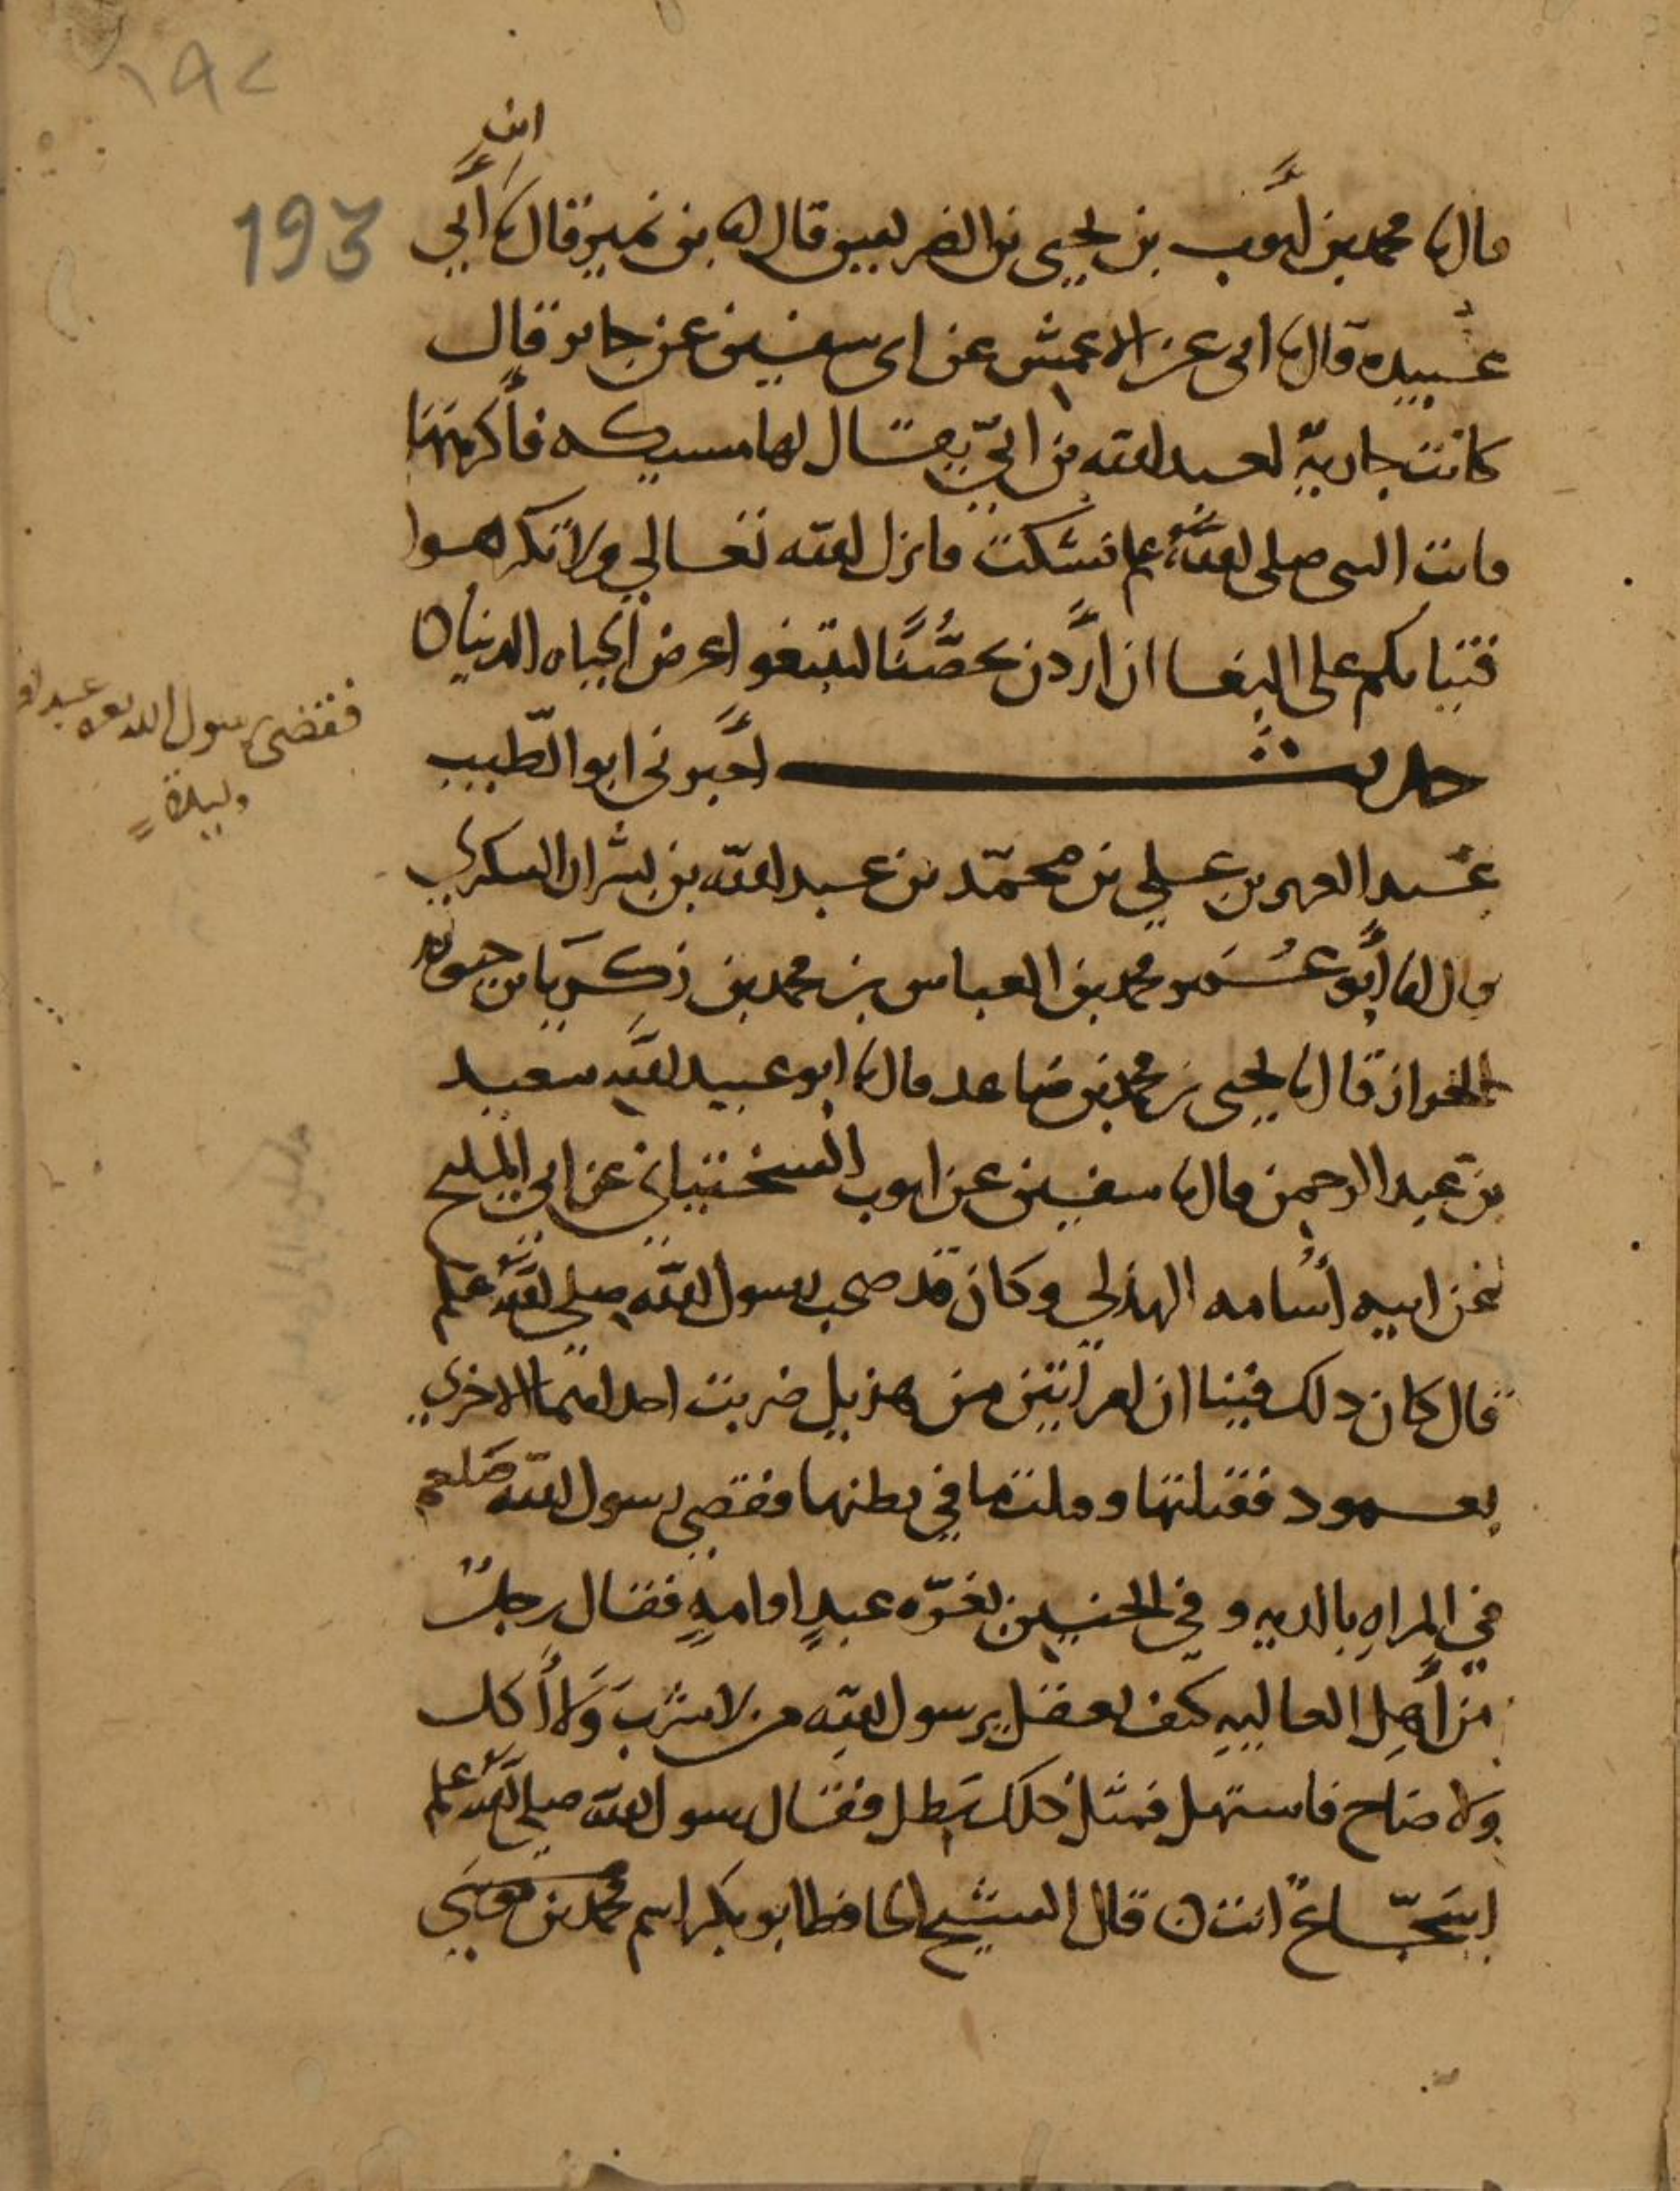 ١٩٢
193
ابن
قال نا محمد بن أيوب بن يحيى بن الضريس قال انا بن نمير قال نا أبي
عبيده قال نا ابي عن الاعمش عن ابي سفين عن جابر قال
كانت جارية لعبد الله بن ابيّ يقال لها مسيكه فأكرهها
فاتت النبي صلى الله علم فشكت فانزل الله تعالي ولا تكرهوا
فتياتكم على البغا ان أردن تحصُّنًا لتبتغوا عرض الحياه الدنيا ه
حديث أخبرني ابو الطيب
عبد العزيز بن علي بن محمّد بن عبد الله بن بشران السكري
قال انا أبو عُمَر محمد بن العباس بن محمد بن زكريا بن حيويه
الخزاز قال نا يحيى بن محمد بن صاعد قال نا ابو عبيد الله سعيد
بن عبد الرحمن قال نا سفين عن ايوب السختياني عن ابي المليح
عن ابيه أسامه الهذلي وكان قد صحب رسول الله صلى الله علم
قال كان ذلك فينا ان امراتين من هذيل ضربت احداهما الاخري
بعمود فقتلتها وقتلت ما في بطنها فقضى رسول الله صلعم
في المراه بالديه وفي الجنين بغرّه عبدٍ او امهٍ فقال رجلٌ
من أهل العاليه كيف نعقل يرسول الله من لا شرب ولا أكل
ولا صاح فاستهل فمثل ذلك يطل فقال رسول الله صلى الله علم
اسَجّاعٌ انت ه قال الشيخ الحافظ ابو بكر اسم محمد بن موسى
فقضى رسول الله بغره عبد او
وليدة